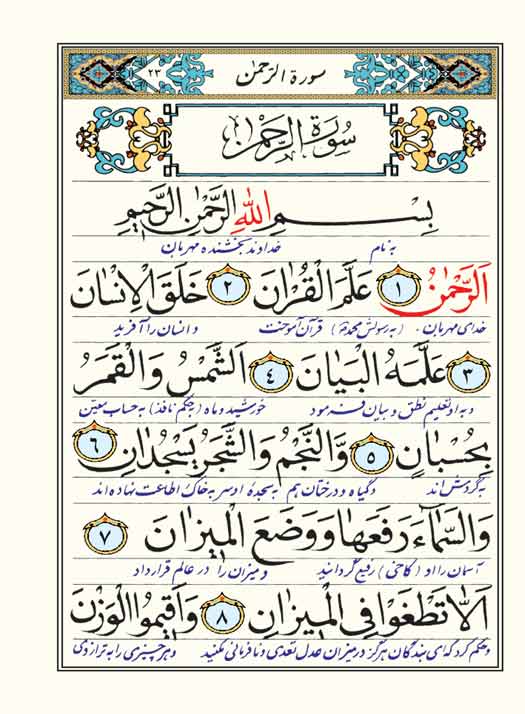 سورة الرّحمٰن ٢٣
سُورَةُ الرَّحْمٰن
بِسْمِ اللّٰهِ الرَّحْمٰنِ الرَّحيمِ
به نام خداوند بخشنده مهربان
اَلرَّحْمٰنُ ١ عَلَّمَ الْقُرْاٰنَ ٢ خَلَقَ الْاِنْسانَ
خدای مهربان. (به رسولش محمد م) قرآن آموخت و انسان را آفرید
٣ عَلَّمَهُ الْبَيانَ ٤ اَلشَّمْسُ وَالْقَمَرُ
و به او تعلیم نطق و بیان فرمود خورشید و ماه (به حکم نافذ) به حساب معین
بِحُسْبانٍ ٥ وَالنَّجْمُ وَالشَّجَرُ يَسْجُدانِ ٦
به گردش اند و گیاه و درختان هم به سجده او سر به خاک اطاعت نهاده اند
وَالسَّماءَ رَفَعَها وَوَضَعَ الْميزانَ ٧
آسمان را او (کاخی) رفیع گردانید و میزان را در عالم قرار داد
اَلّا تَطْغَوْا فِي الْميزانِ ٨ وَاَقيمُوا الْوَزْنَ
و حکم کرد که ای بندگان هرگز در میزان عدل تعدی و نافرمانی نکنید و هر چیزی را به ترازوی